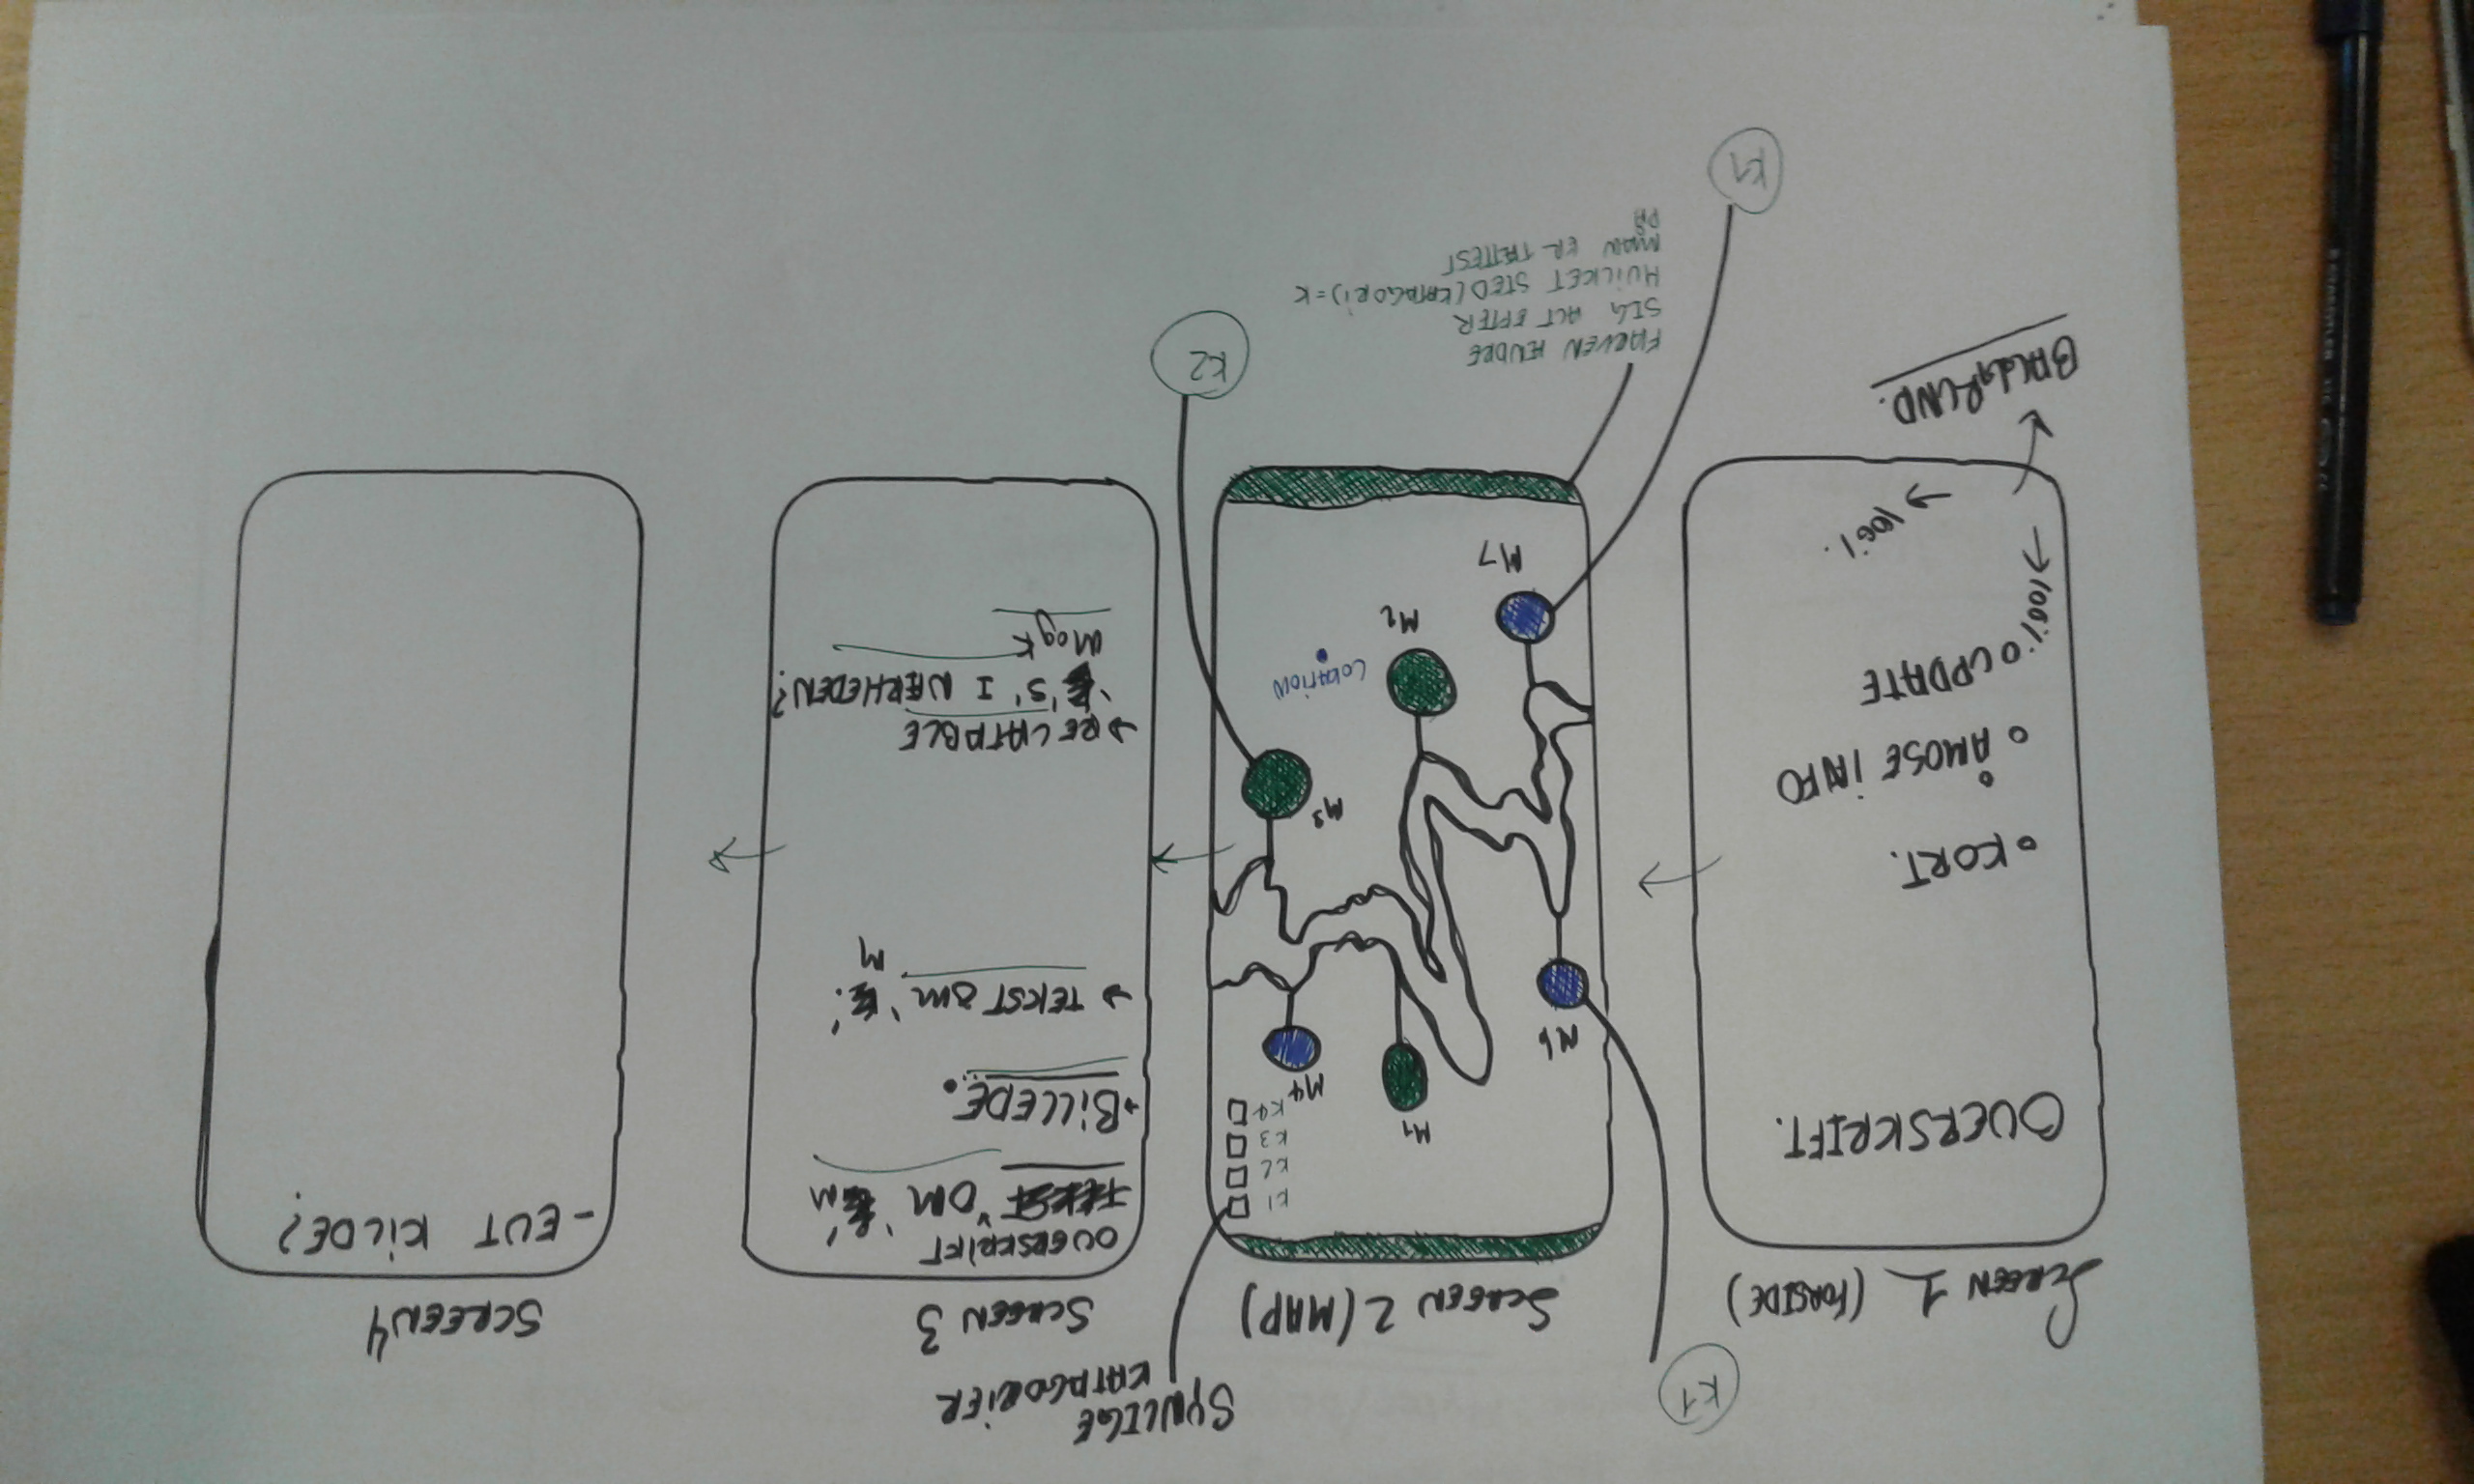 K1
SYNLIGE
KATAGORIER
SCREEN 1 (FORSIDE)
OVERSKRIFT.
KORT.
ÅMOSE INFO
UPDATE
→100%
→ 100%.
BAGGRUND.
SCREEN 2 (MAP)
K1
K2
K3
K4
M1
M4
M6
M3
LOKATION
M2
M7
FARVEN ÆNDRE
SIG ALT EFTER
HVILKET STED (KATAGORI) = K
MAN ER TÆTTEST
PÅ
K1
K2
SCREEN 3
OVERSKRIFT
TEKST OM ' M'
→BILLEDE.
→ TEKST OM ' '
M
→ RELATABLE
' 'S' I NÆRHEDEN?
M og K
SCREEN 4
- EVT KILDE?